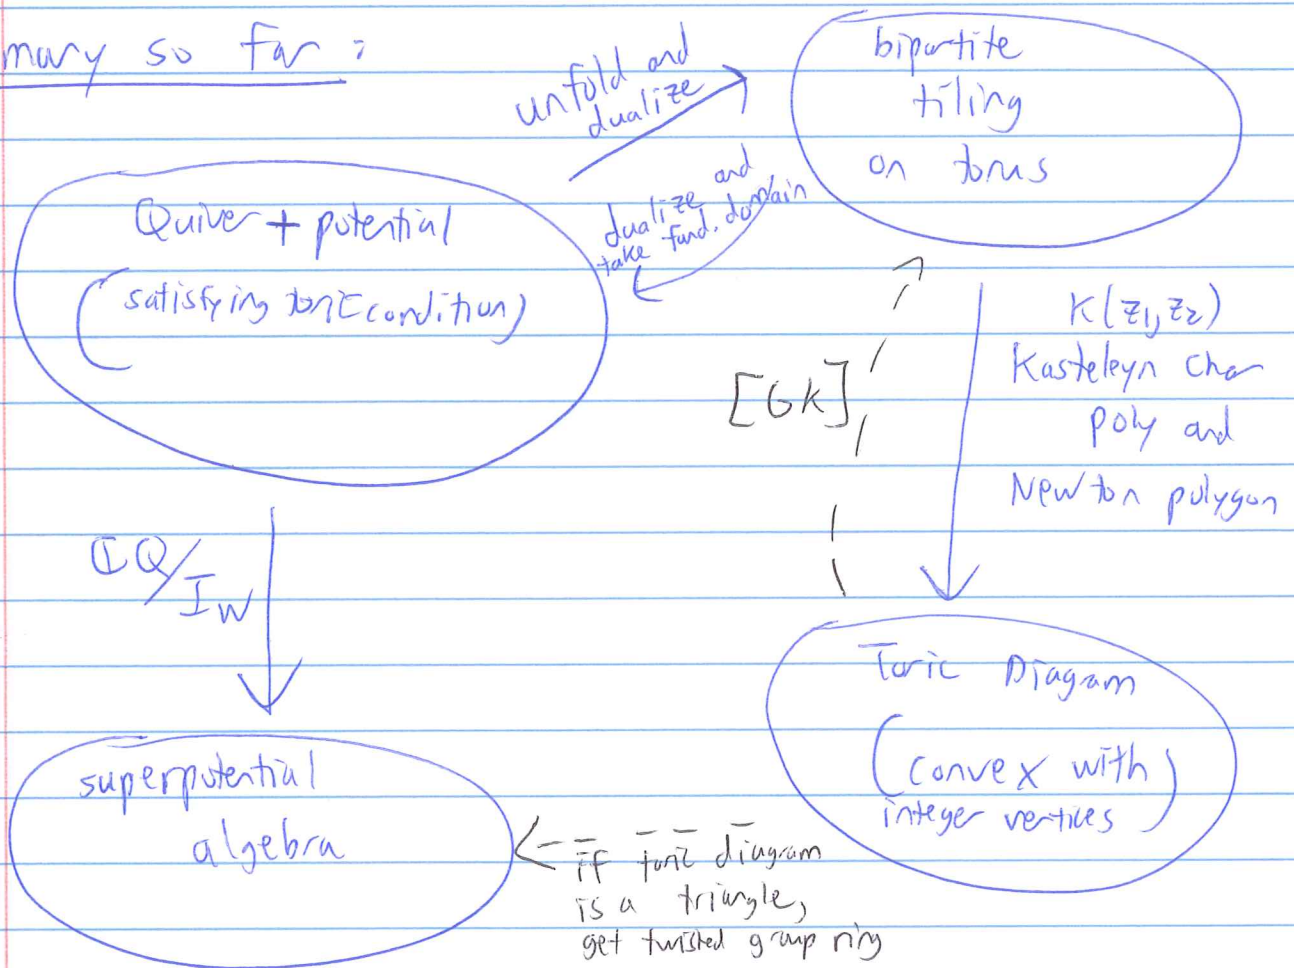 mary so far :
unfold and
dualize
bipartite
tiling
on torus
dualize and
take fund. domain
Quiver + potential
(satisfying toric condition)
[GK]
K(z₁, z₂)
Kasteleyn char
poly and
Newton polygon
ℂQ/I_W
Toric Diagram
(convex with
integer vertices)
superpotential
algebra
if toric diagram
is a triangle,
get twisted group ring